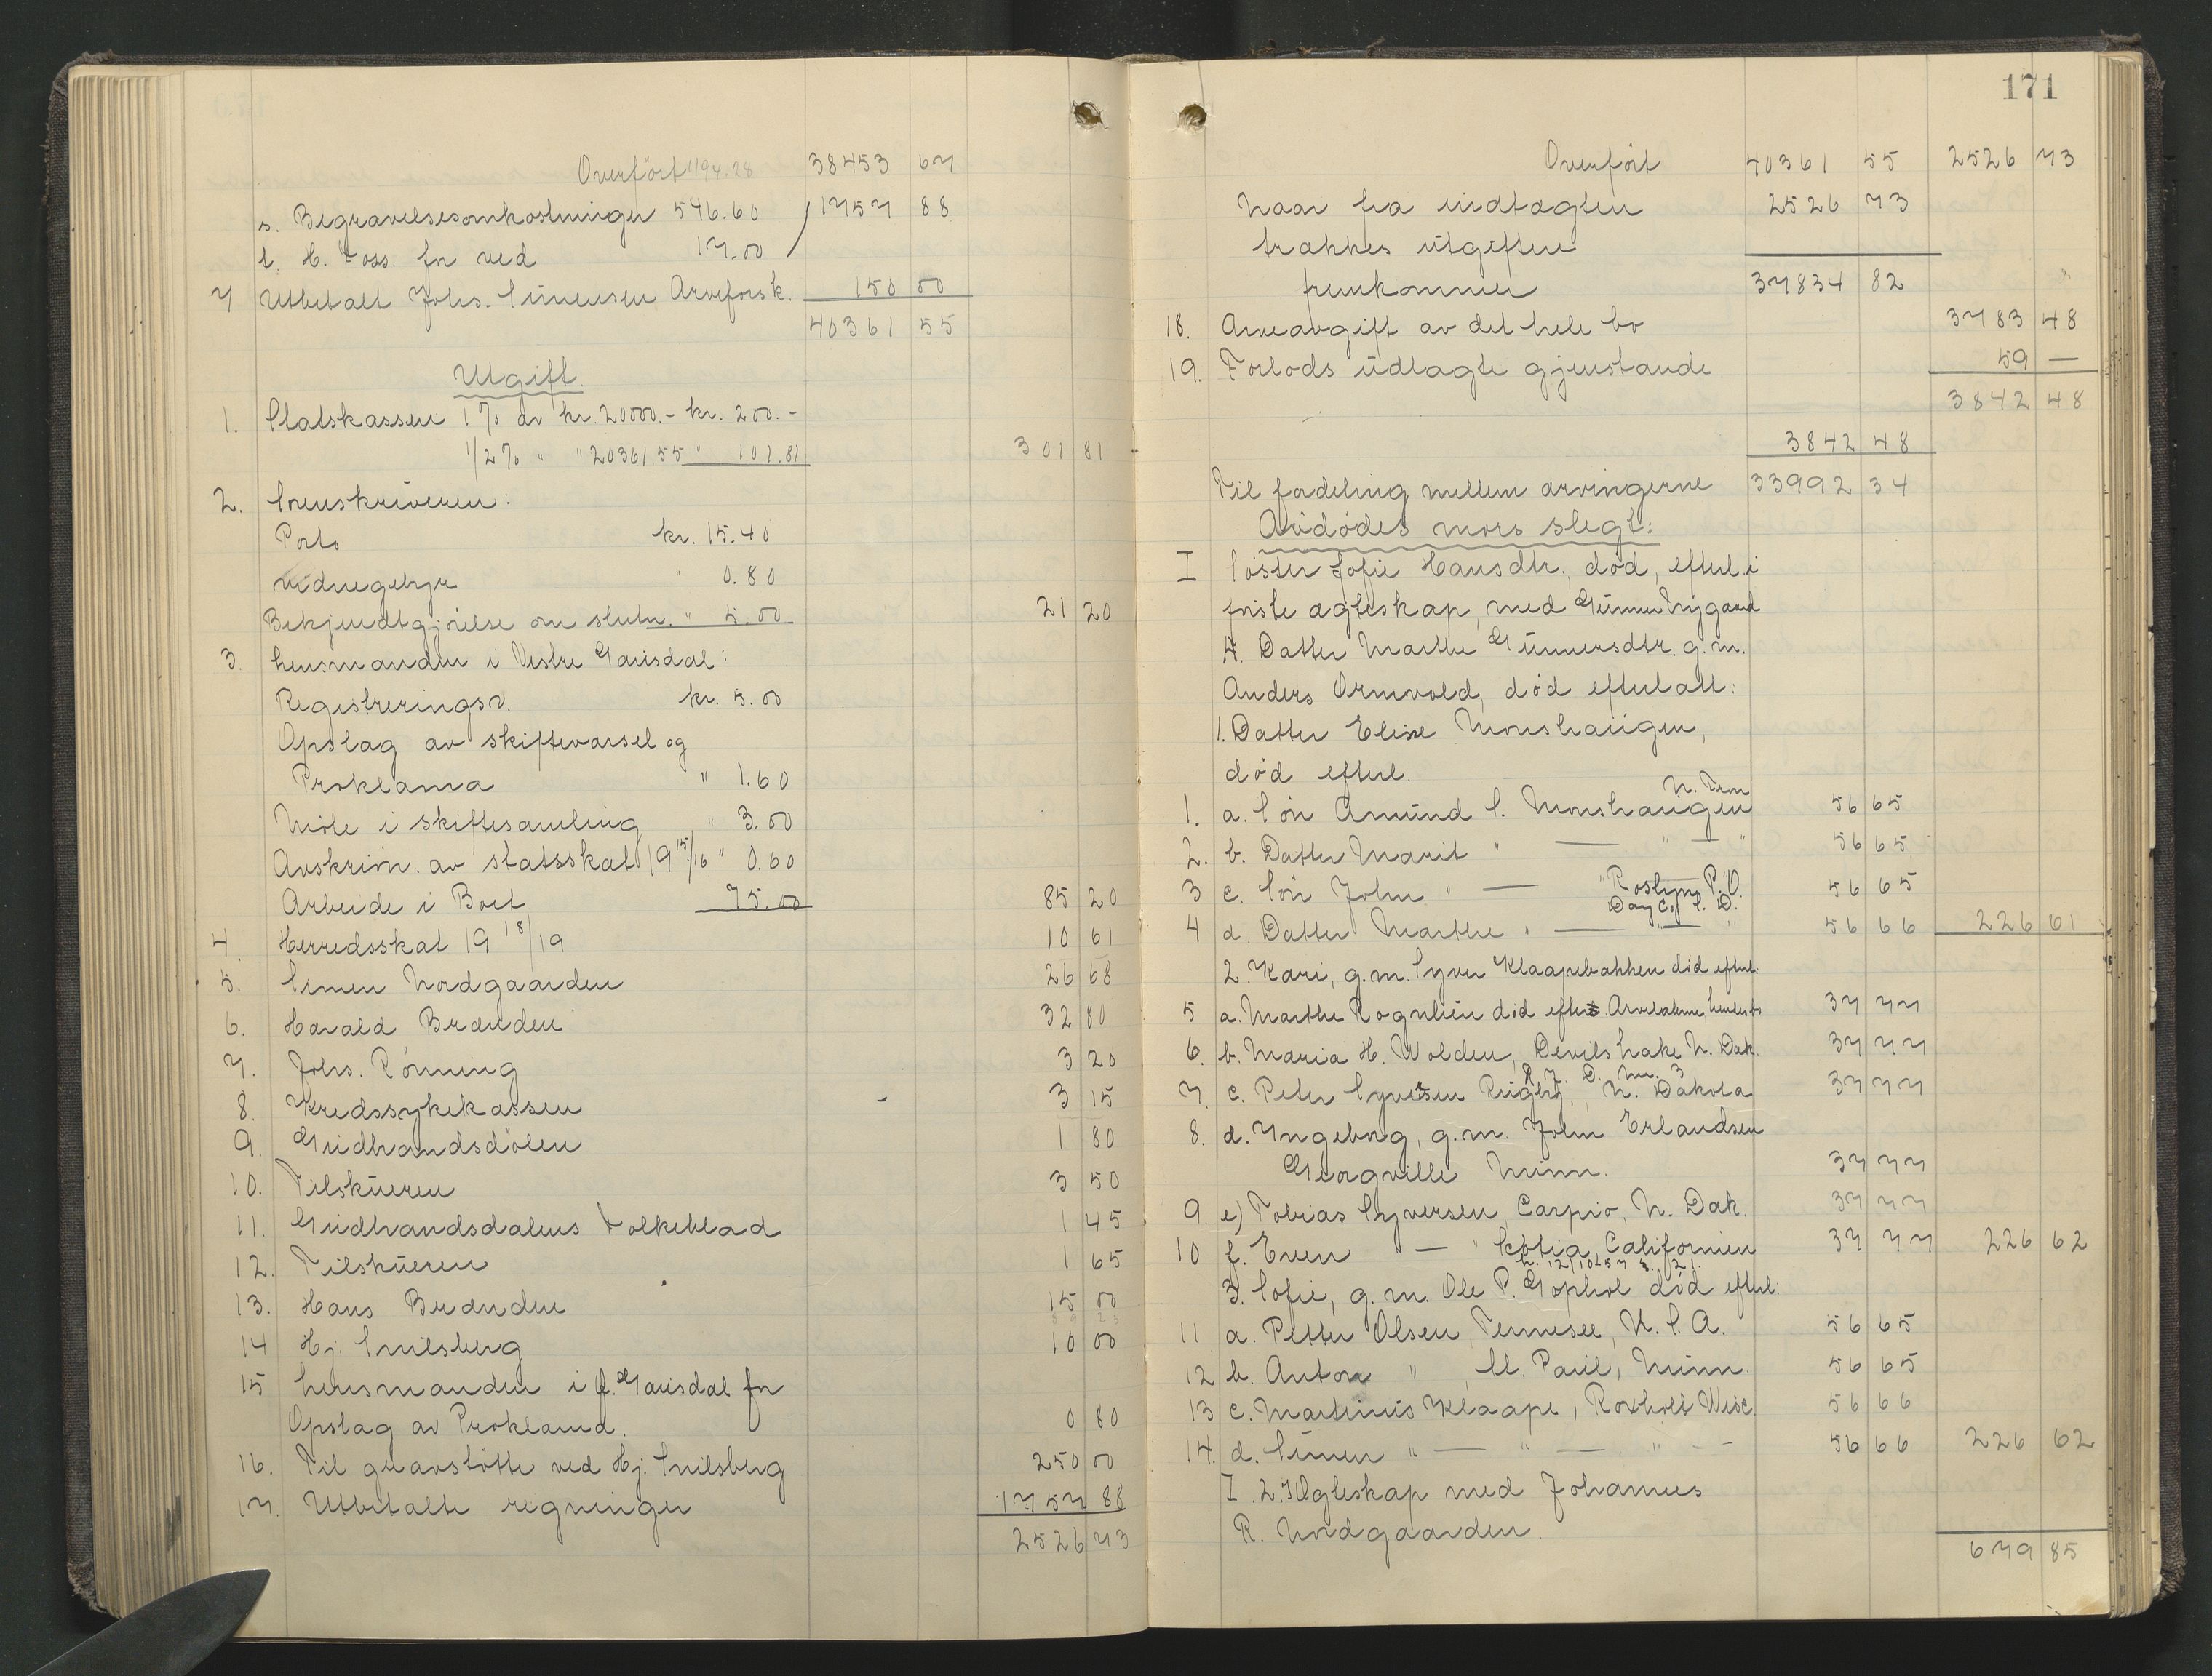 Overført 1194.28 38453 67
s. Begravelsesomkostninger 546.60 1757 88
t. H. Foss. for ved 17.00
7 Utbetalt Johs. Simensen Arveforsk. 150 00
40361 55
Utgift.
1. Statskassen 1% av kr. 20000.- kr. 200.-
1/2% " " 20361.55 " 101.81 301 81
2. Sorenskriveren:
Porto kr. 15.40
Vidnegebyr " 0.80
Bekjendtgjørelse om slutn. " 5.00 21 20
3. Lensmanden i Vestre Gausdal:
Registreringsv. kr. 5.00
Opslag av skiftevarsel og
Proklama " 1.60
Møte i skiftesamling " 3.00
Avskrivn. av statsskat 19 15/16 " 0.60
Arbeide i Boet 75.00 85 20
4. Herredsskat 19 18/19 10 61
5. Simen Nordgaarden 26 68
6. Harald Brænden 32 80
7. Johs. Rønning 3 20
8. Kredssykekassen 3 15
9. Gudbrandsdølen 1 80
10. Tilskueren 3 50
11. Gudbrandsdalens Folkeblad 1 45
12. Tilskueren 1 65
13. Hans Brænden 15 00
14 Hj. Snilsberg 10 00
15 Lensmanden i Ø. Gausdal for
Opslag av Proklama. 0 80
16. Til gravstøtte ved Hj. Snilsberg 250 00
17. Utbetalte regninger 1757 88
2526 73
171
Overført 40361 55 2526 73
Naar fra indtægten 2526 73
trækkes utgiften
fremkommer 37834 82
18. Arveavgift av det hele bo 3783 48
19. Forlods utlagte gjenstande 59 —
3842 48
3842 48
Til fordeling mellem arvingerne 33992 34
Avdødes mors slegt:
I Søster Sofie Hansdtr., død, efterl. i
første ægteskap, med Gunner Nygaard
A. Datter Marthe Gunnersdtr. g.m.
Anders Ormvold, død efterlatt:
1. Datter Elise Monshaugen,
død efterl.
1. a. Søn Amund S. Monshaugen 56 65
2. b. Datter Marit " — " — " 56 65
3 c. Søn John " — " Roslyn P.O. 56 65
Day Co. S. D.
4 d. Datter Marthe " — " — " 56 66 226 61
2. Kari, g.m. Syver Klaapebakken død efterl:
5 a. Marthe Rognlien død 37 77
6. b. Maria H. Wolden, Devils Lake N. Dak. 37 77
7. c. Peter Syversen Rugby, N. Dakota 37 77
8. d. Ingeborg, g.m. John Erlandsen
Georgville Minn. 37 77
9. e) Tobias Syversen, Carpio, N. Dak. 37 77
10 f. Even — " Californien 37 77 226 62
3. Sofie, g.m. Ole P. Gophol død efterl:
11 a. Petter Olsen, Tennesee, U.S.A. 56 65
12 b. Anton " , St. Paul, Minn. 56 65
13 c. Martinius Klaape, Roxholt Wisc. 56 66
14. d. Simen " — " — " — 56 66 226 62
I. 2. Ægteskap med Johannes
R. Nordgaarden.
679 85